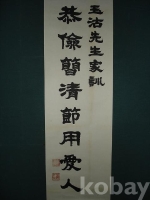 玉沽先生家訓
恭儉簡清節用愛人
kobay